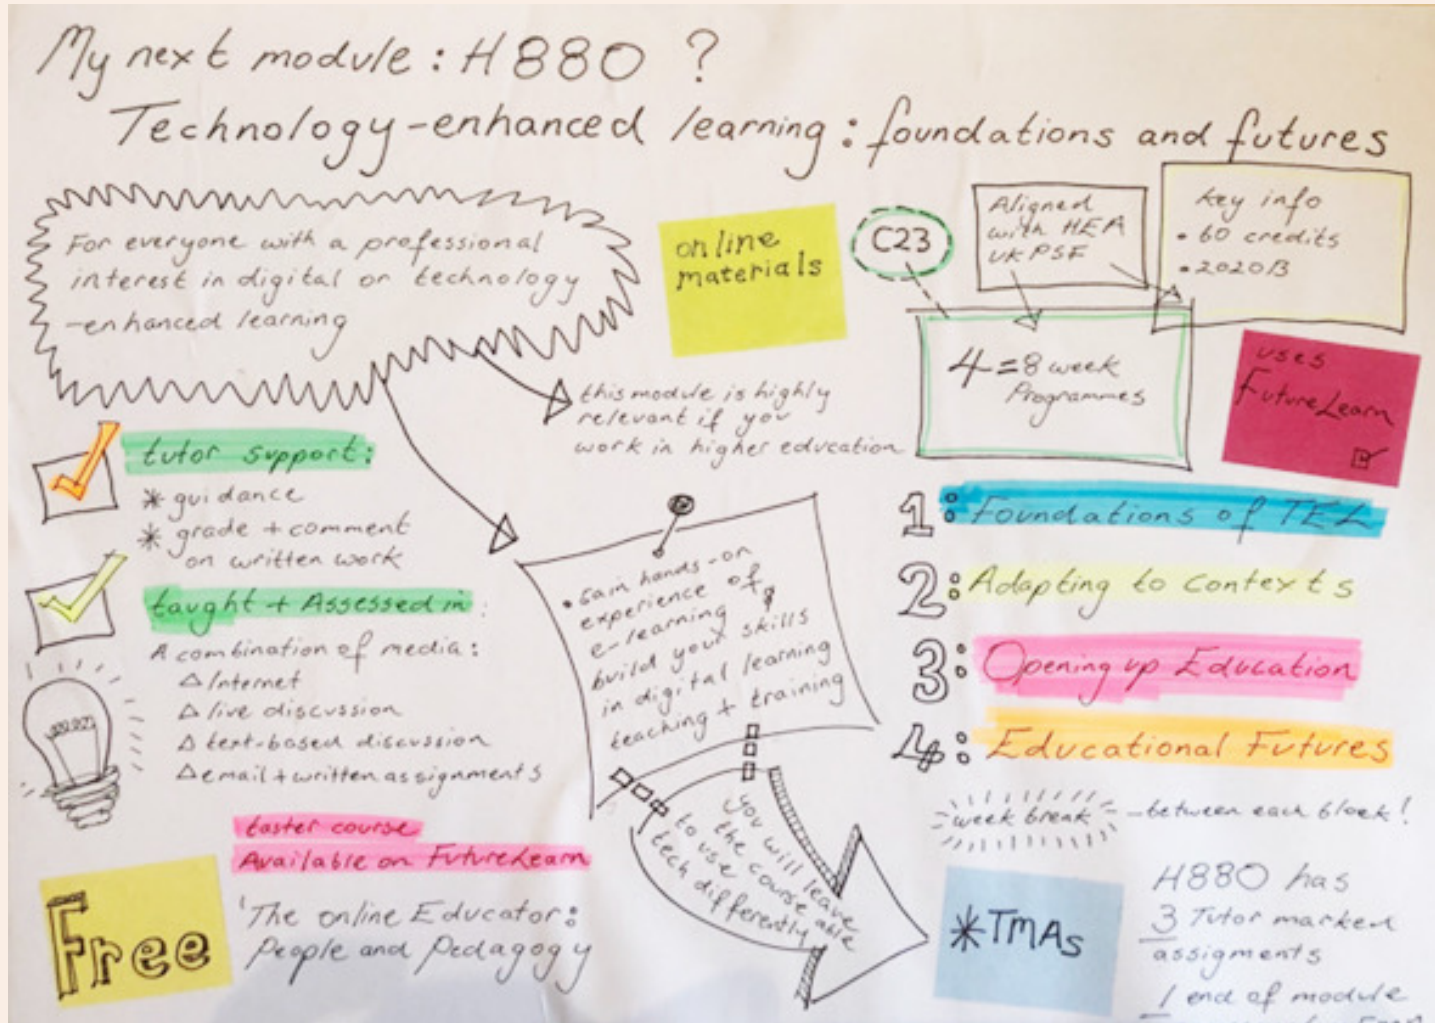 My next module: H880 ?
Technology-enhanced learning: foundations and futures
For everyone with a professional
interest in digital or technology
-enhanced learning
online
materials
C23
Aligned
with HEA
UKPSF
Key info
• 60 credits
• 2020B
4 = 8 week
Programmes
uses
FutureLearn
this module is highly
relevant if you
work in higher education
tutor support:
* guidance
* grade + comment
on written work
taught + Assessed in:
A combination of media:
Internet
live discussion
text-based discussion
email + written assignments
• Gain hands-on
experience of
e-learning &
build your skills
in digital learning
teaching + training
you will leave
the course able
to use
tech differently
1: Foundations of TEL
2: Adapting to contexts
3: Opening up Education
4: Educational Futures
week break - between each block!
taster course
Available on FutureLearn
Free
'The online Educator:
People and Pedagogy
*TMAs
H880 has
3 Tutor marked
assigments
1 end of module